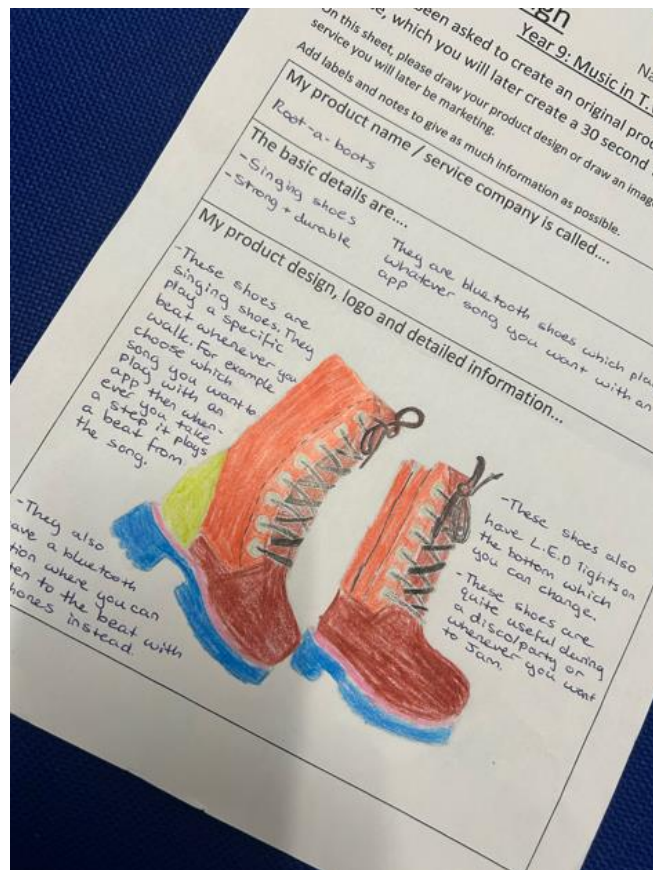 Year 9: Music in T.
been asked to create an original
which you will later create a 30 second
On this sheet, please draw your product design or draw an
service you will later be marketing.
Add labels and notes to give as much information as possible.
My product name / service company is called....
Root-a-boots
The basic details are....
-Singing shoes
-Strong + durable
They are bluetooth shoes which
whatever song you want with an
app
My product design, logo and detailed information...
-These shoes are
singing shoes. They
play a specific
beat whenever you
walk. For example
choose which
song you want to
play with an
app then when-
ever you take
a step it plays
a beat from
the song.
-They also
a bluetooth
where you can
to the beat with
instead.
-These shoes also
have L.E.D lights on
the bottom which
you can change.
-These shoes are
quite useful during
a disco/party or
whenever you want
to Jam.